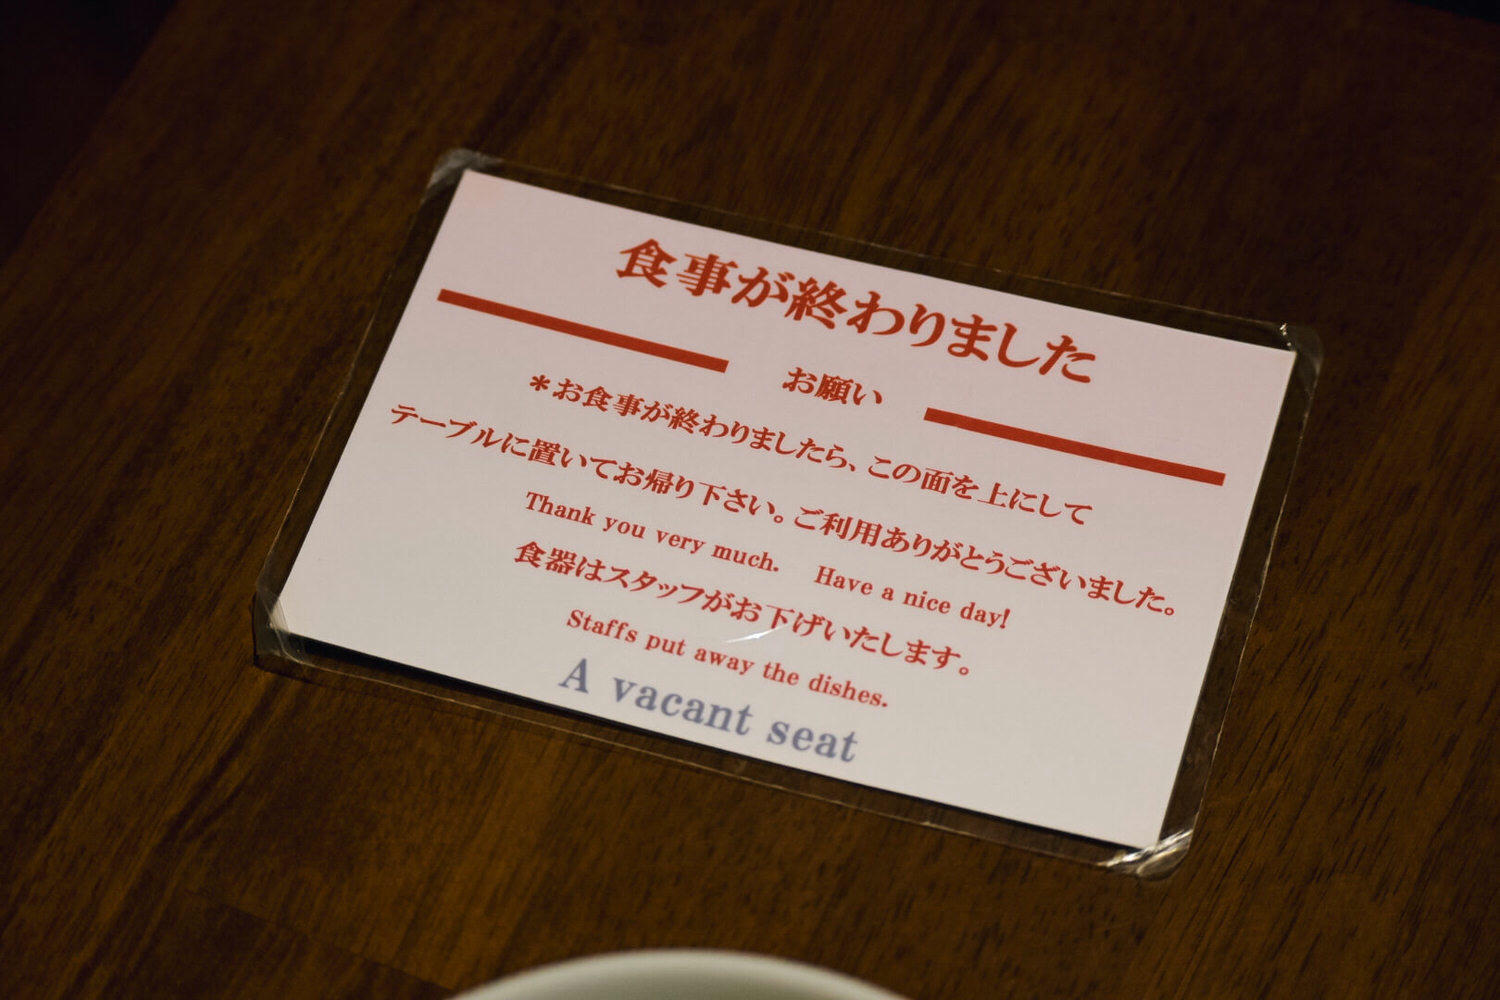 食事が終わりました
お願い
＊お食事が終わりましたら、この面を上にして
テーブルに置いてお帰り下さい。ご利用ありがとうございました。
Thank you very much. Have a nice day!
食器はスタッフがお下げいたします。
Staffs put away the dishes.
A vacant seat